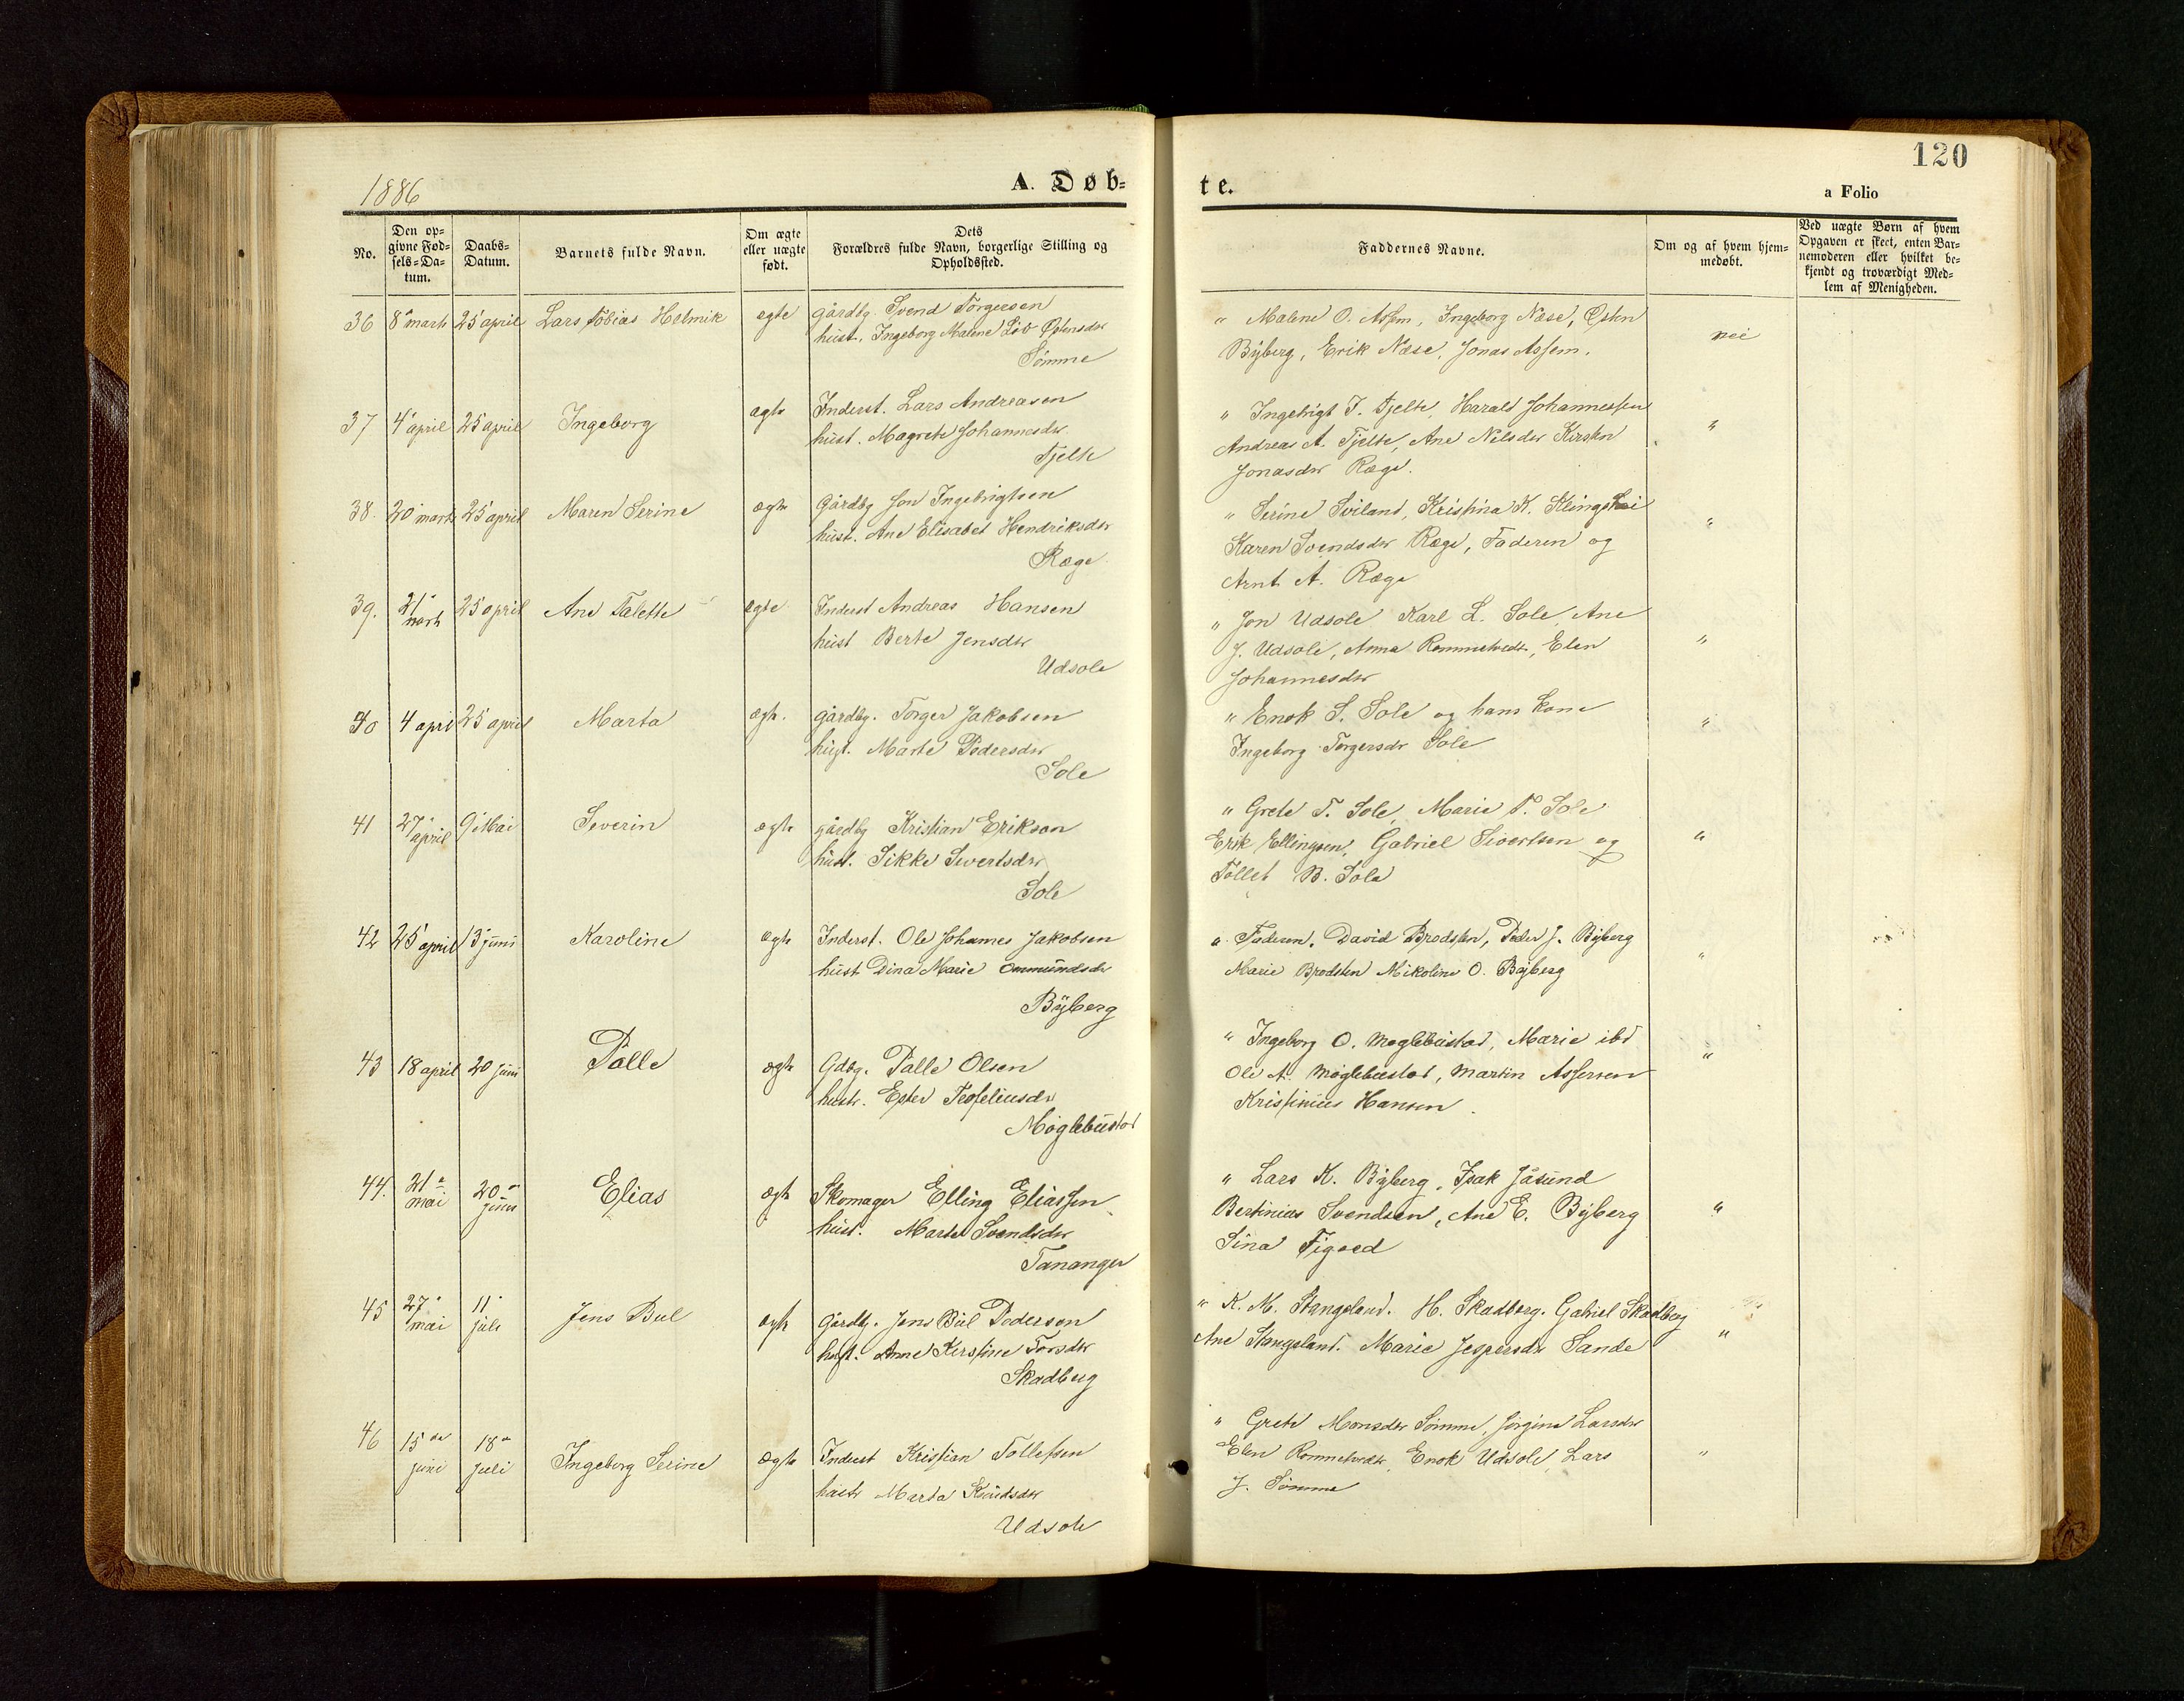 1886
A. Døb-
te.
120
a Folio
No.
Den op-
givne Fød-
sels-Da-
tum.
Daabs-
Datum.
Barnets fulde Navn.
Om ægte
eller uægte
født.
Dets
Forældres fulde Navn, borgerlige Stilling og
Opholdssted.
Faddernes Navne.
Om og af hvem hjem-
medøbt.
Ved uægte Børn af hvem
Opgaven er skeet, enten Bar-
nemoderen eller hvilket be-
kjendt og troværdigt Med-
lem af Menigheden.
36 8 marts 25 april Lars Tobias Helmik ægte gårdbg. Svend Torgersen
hust. Ingeborg Malene Østensdtr
Sömme
" Malene O. Assem, Ingeborg Næse, Østen
Byberg, Erik Næse, Jonas Assem.
nei
37 4 april 25 april Ingeborg ægte Inderst. Lars Andreasen
hust. Magrete Johannesdtr
Tjelte
" Ingebrigt J. Tjelte, Harald Johannessen
Andreas A. Tjelte, Ane Nilsdtr Kirsten
Jonasdtr Ræge.
"
38. 20 marts 25 april Maren Serine ægte Gårdbg Jon Ingebrigtsen
hust. Ane Elisabet Hendriksdtr
Ræge
" Serine Sviland, Kristina K. Klingshei
Karen Svendsdtr Ræge, Faderen og
Arnt A. Ræge
"
39. 21 marts 25 april Ane Talette ægte Inderst Andreas Hansen
hust Berte Jensdtr
Udsole
" Jon Udsole Karl L. Sole, Ane
J. Udsole, Anna Rommetvedt, Elen
Johannesdtr
"
40 4 april 25 april Marta ægte. gårdbg. Torger Jakobsen
hust. Marte Pedersdtr
Sole
" Enok S. Sole og hans Kone
Ingeborg Torgersdtr Sole
"
41 27 april 9 Mai Severin ægte gårdbg Kristian Erikson
hust. Sikke Sivertsdtr
Sole
" Grete T. Sole, Marie T. Sole
Erik Ellingsen, Gabriel Sivertsen og
Tollet B. Sola
"
42 25 april 13 juni Karoline ægte Inderst. Ole Johannes Jakobsen
hust Dina Marie Ommundsdtr
Byberg
" Faderen, David Brodsten, Peder J. Byberg
Marie Brodsten Mikoline O. Byberg
"
43 18 april 20 juni Palle ægte Gdbg. Palle Olsen
hustr. Ester Teofeliusdtr
Moglebustad
" Ingeborg O. Moglebustad, Marie ibd
Ole A. Moglebustad, Martin Assersen
Kristinius Hansen.
"
44. 21 mai 20 juni Elias ægte Skomager Elling Eliassen
hust. Marte Svendsdtr
Tananger
" Lars K. Byberg, Isak Jåsund
Bertinius Svendsen, Ane E. Byberg
Sina Tigaed
"
45 27 mai 11 juli Jens Bul ægte Gårdbg. Jens Bul Pederson
hust. Anne Kirstine Torsdtr
Skadberg
" K. M. Stangeland. H. Skadberg. Gabriel Skadberg
Ane Stangeland. Marie Jespersdtr Sande
"
46 15de juni 18de juli Ingeborg Serine ægte Inderst Kristian Tollefsen
hustr Marta Knudsdtr
Udsole
" Grete Monsdtr Sömme, Jorgine Larsdtr
Elen Rommetvedt, Enok Udsole, Lars
J. Sömme
"